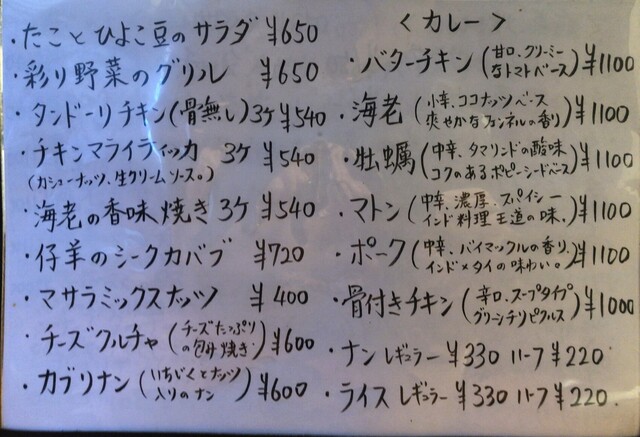 ・たことひよこ豆のサラダ ¥650
・彩り野菜のグリル ¥650
・タンドーリチキン(骨無し)3ケ ¥540
・チキンマライティッカ 3ケ ¥540
(カシューナッツ、生クリームソース。)
・海老の香味焼き 3ケ ¥540
・仔羊のシークカバブ ¥720
・マサラミックスナッツ ¥400
・チーズクルチャ(チーズたっぷりの包み焼き) ¥600
・カブリナン(いちじくとナッツ入りのナン) ¥600
<カレー>
・バターチキン(甘口、クリーミーなトマトベース) ¥1100
・海老(小辛、ココナッツベース 爽やかなフェンネルの香り) ¥1100
・牡蠣(中辛、タマリンドの酸味 コクのあるポピーシードベース) ¥1100
・マトン(中辛、濃厚、スパイシー インド料理王道の味。) ¥1100
・ポーク(中辛、バイマックルの香り、インド×タイの味わい。) ¥1100
・骨付きチキン(辛口、スープタイプ グリーンチリピクルス) ¥1000
・ナン レギュラー ¥330 ハーフ ¥220.
・ライス レギュラー ¥330 ハーフ ¥220.